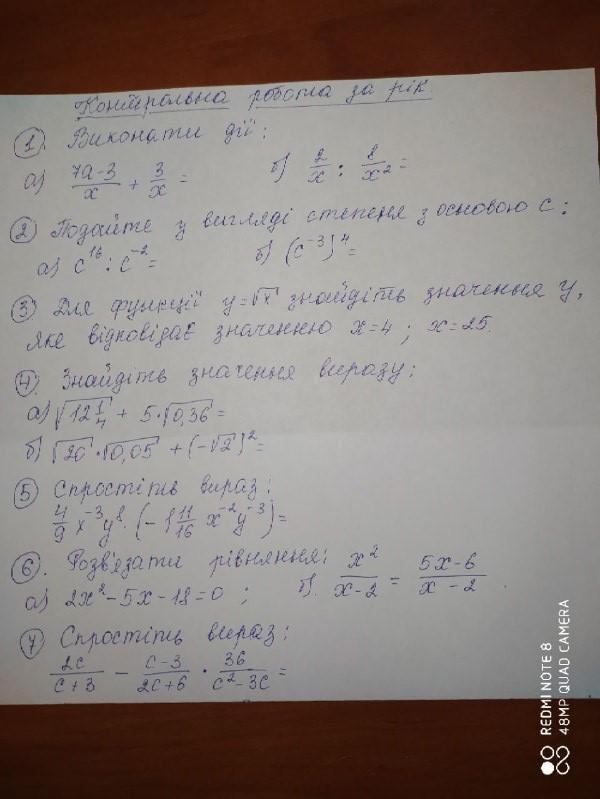 Контрольна робота за рік
1. Виконати дії:
а) (7a-3)/x + 3/x = б) 2/x : 8/x² =
2 Подайте у вигляді степеня з основою с:
а) c¹⁶ : c⁻² = б) (c⁻³)⁴ =
3 Для функції y=√x знайдіть значення y,
яке відповідає значенню x=4; x=25.
4. Знайдіть значення виразу:
а) √(12 1/4) + 5·√0,36 =
б) √20·√0,05 + (-√2)² =
5 Спростіть вираз:
4/9 x⁻³y⁸·(-1 11/16 x⁻²y⁻³) =
6. Розв'язати рівняння:
а) 2x²-5x-18=0; б). x²/(x-2) = (5x-6)/(x-2).
7 Спростіть вираз:
2c/(c+3) - (c-3)/(2c+6) · 36/(c²-3c) =
REDMI NOTE 8
48MP QUAD CAMERA